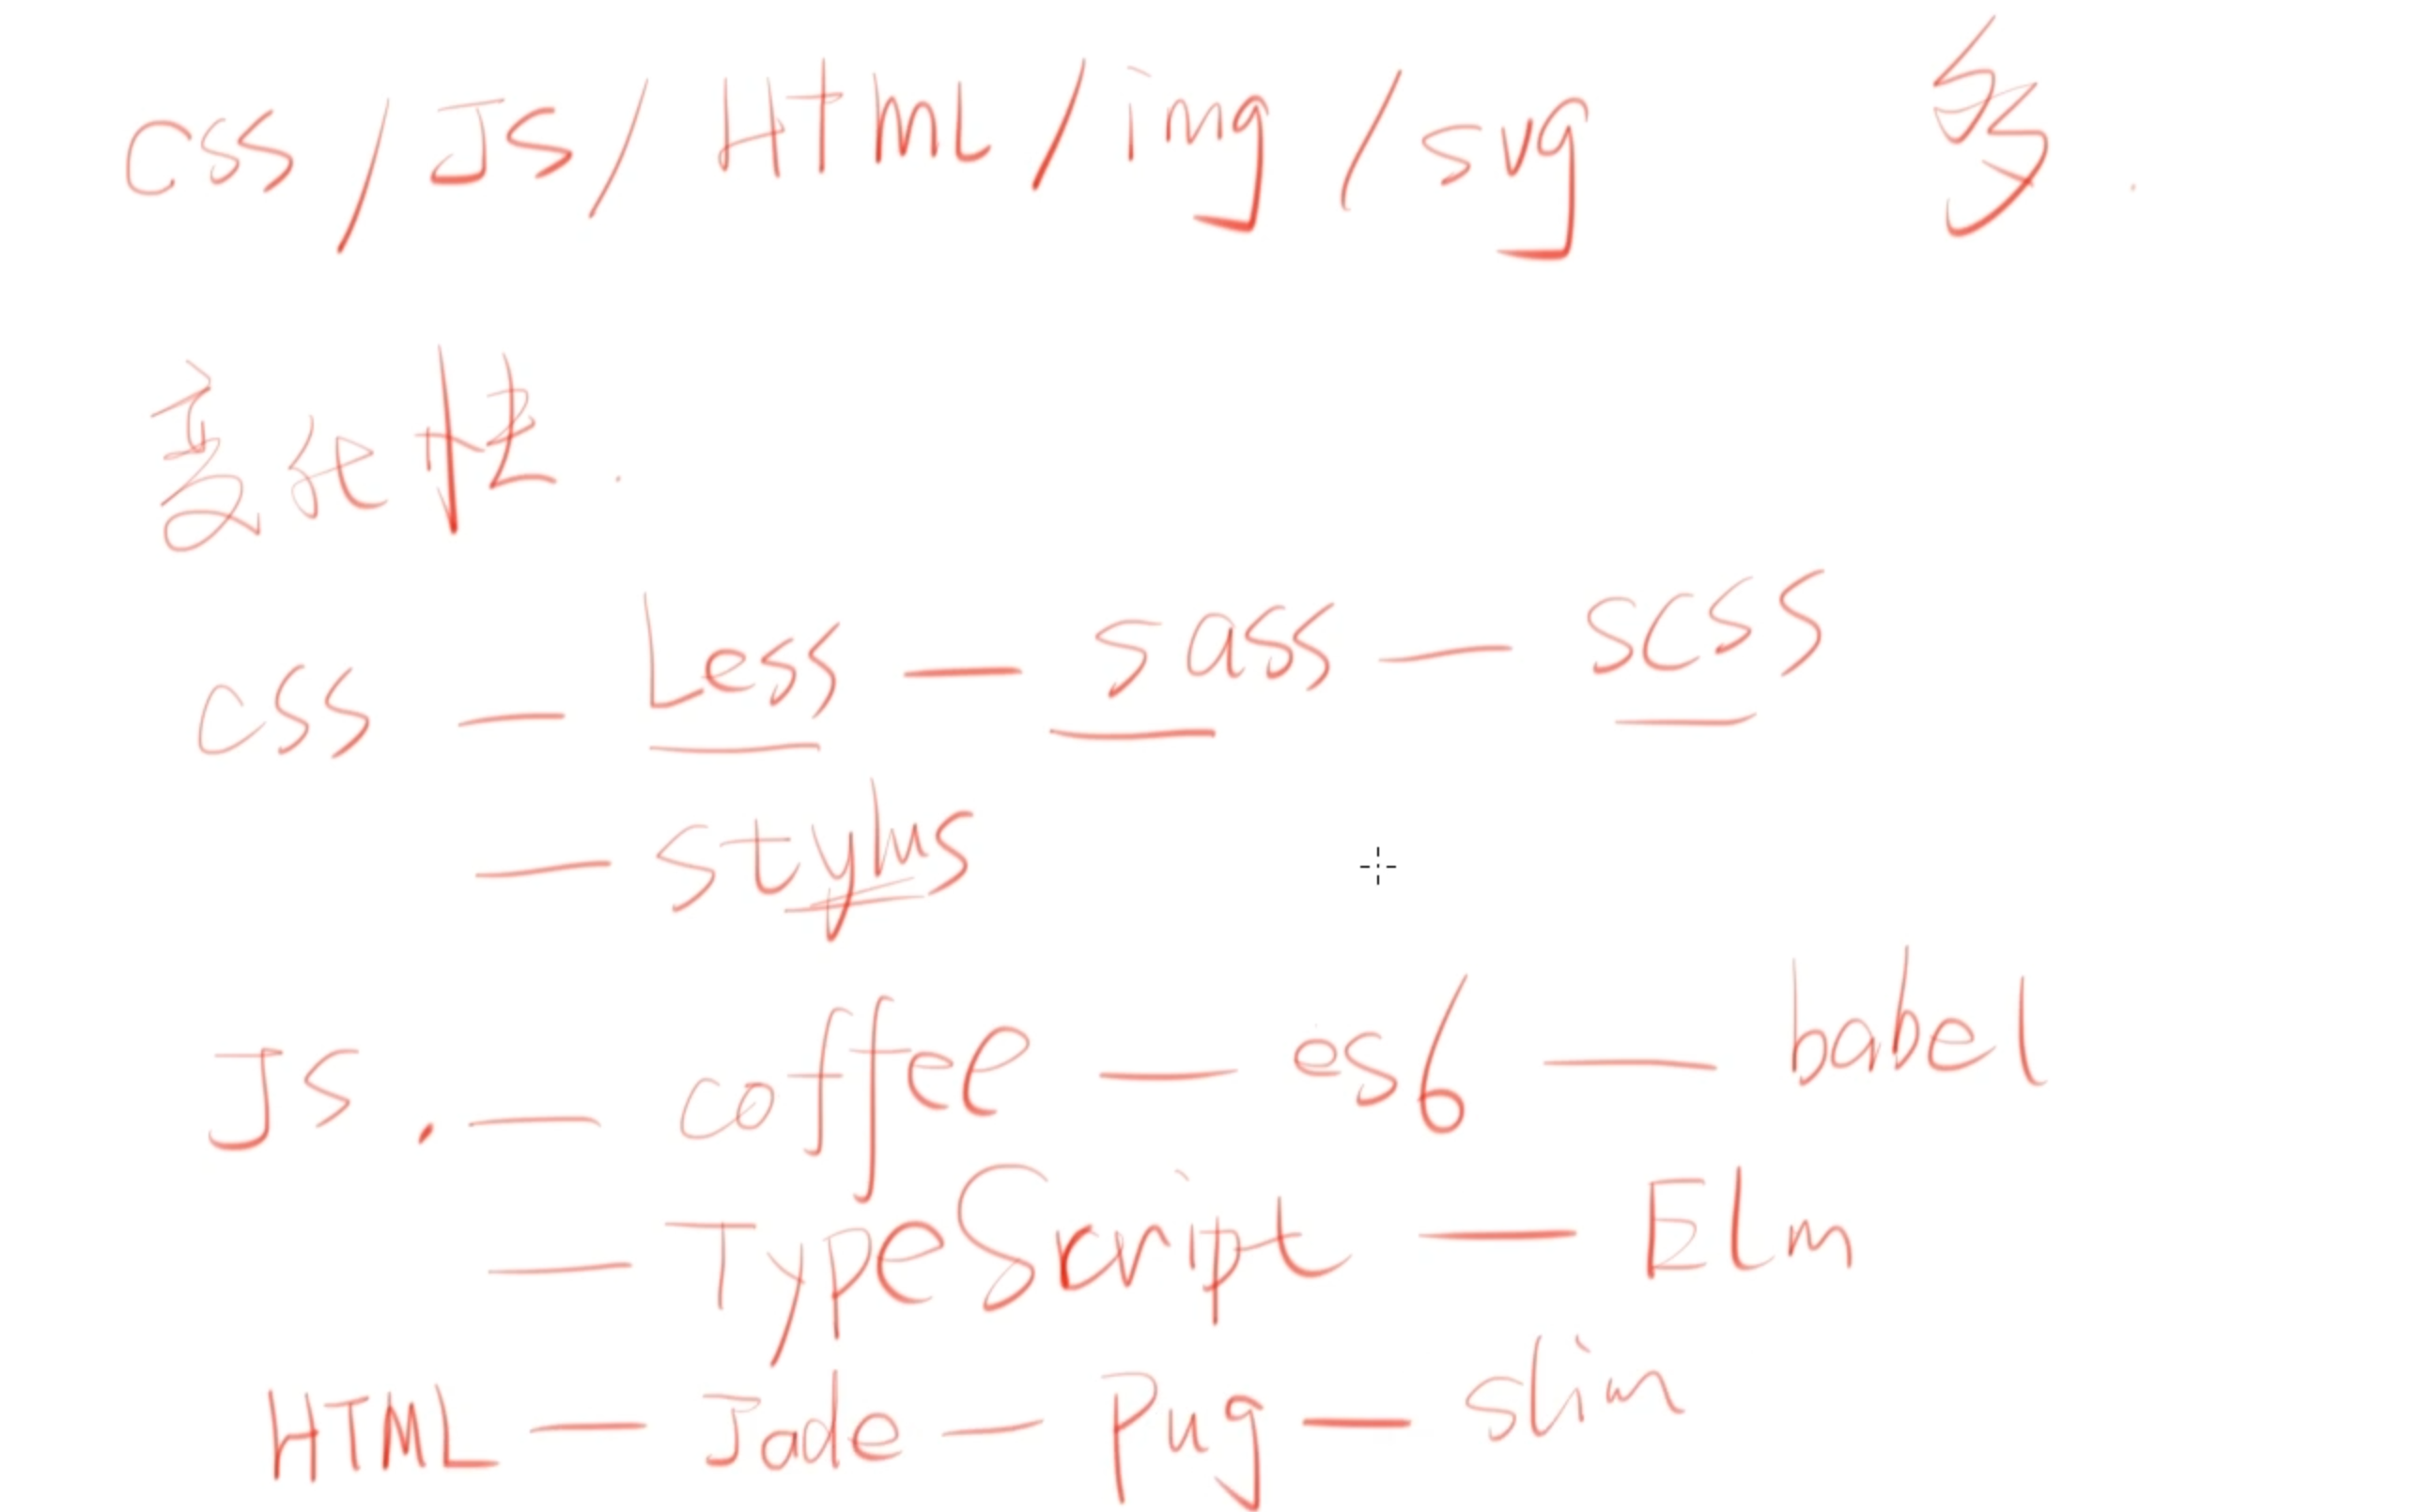 css / Js / Html / img / svg 多.
变化性.
css — Less — sass — scss
— stylus
Js. — coffee — es6 — babel
— TypeScript — Elm
HTML — Jade — Pug — slim